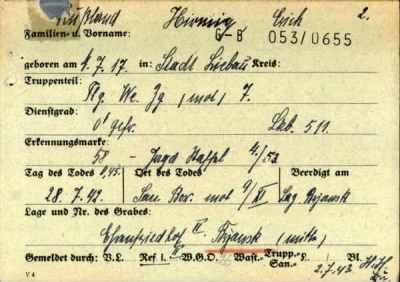 Rußland Hirnig Erich 2.
Familien- u. Vorname: G-B 053/0655
geboren am 4.7.17 in: Stadt Liebau Kreis:
Truppenteil: Rg. We. Zg (mot) 7.
Dienstgrad: O'gefr. Lkb. 511
Erkennungsmarke: 58 - Jagd Staffel 4./53
Tag des Todes 0,45. Ort des Todes Beerdigt am
28.7.42. San. Ber. mot 9/XI Sag. Bryansk
Lage und Nr. des Grabes:
Ehrenfriedhof II Brjansk (mitte)
Gemeldet durch: V.L. Ref I. W.G.O. Wast.- Trupp.- San.- / Bl.
2.7.43
V 4